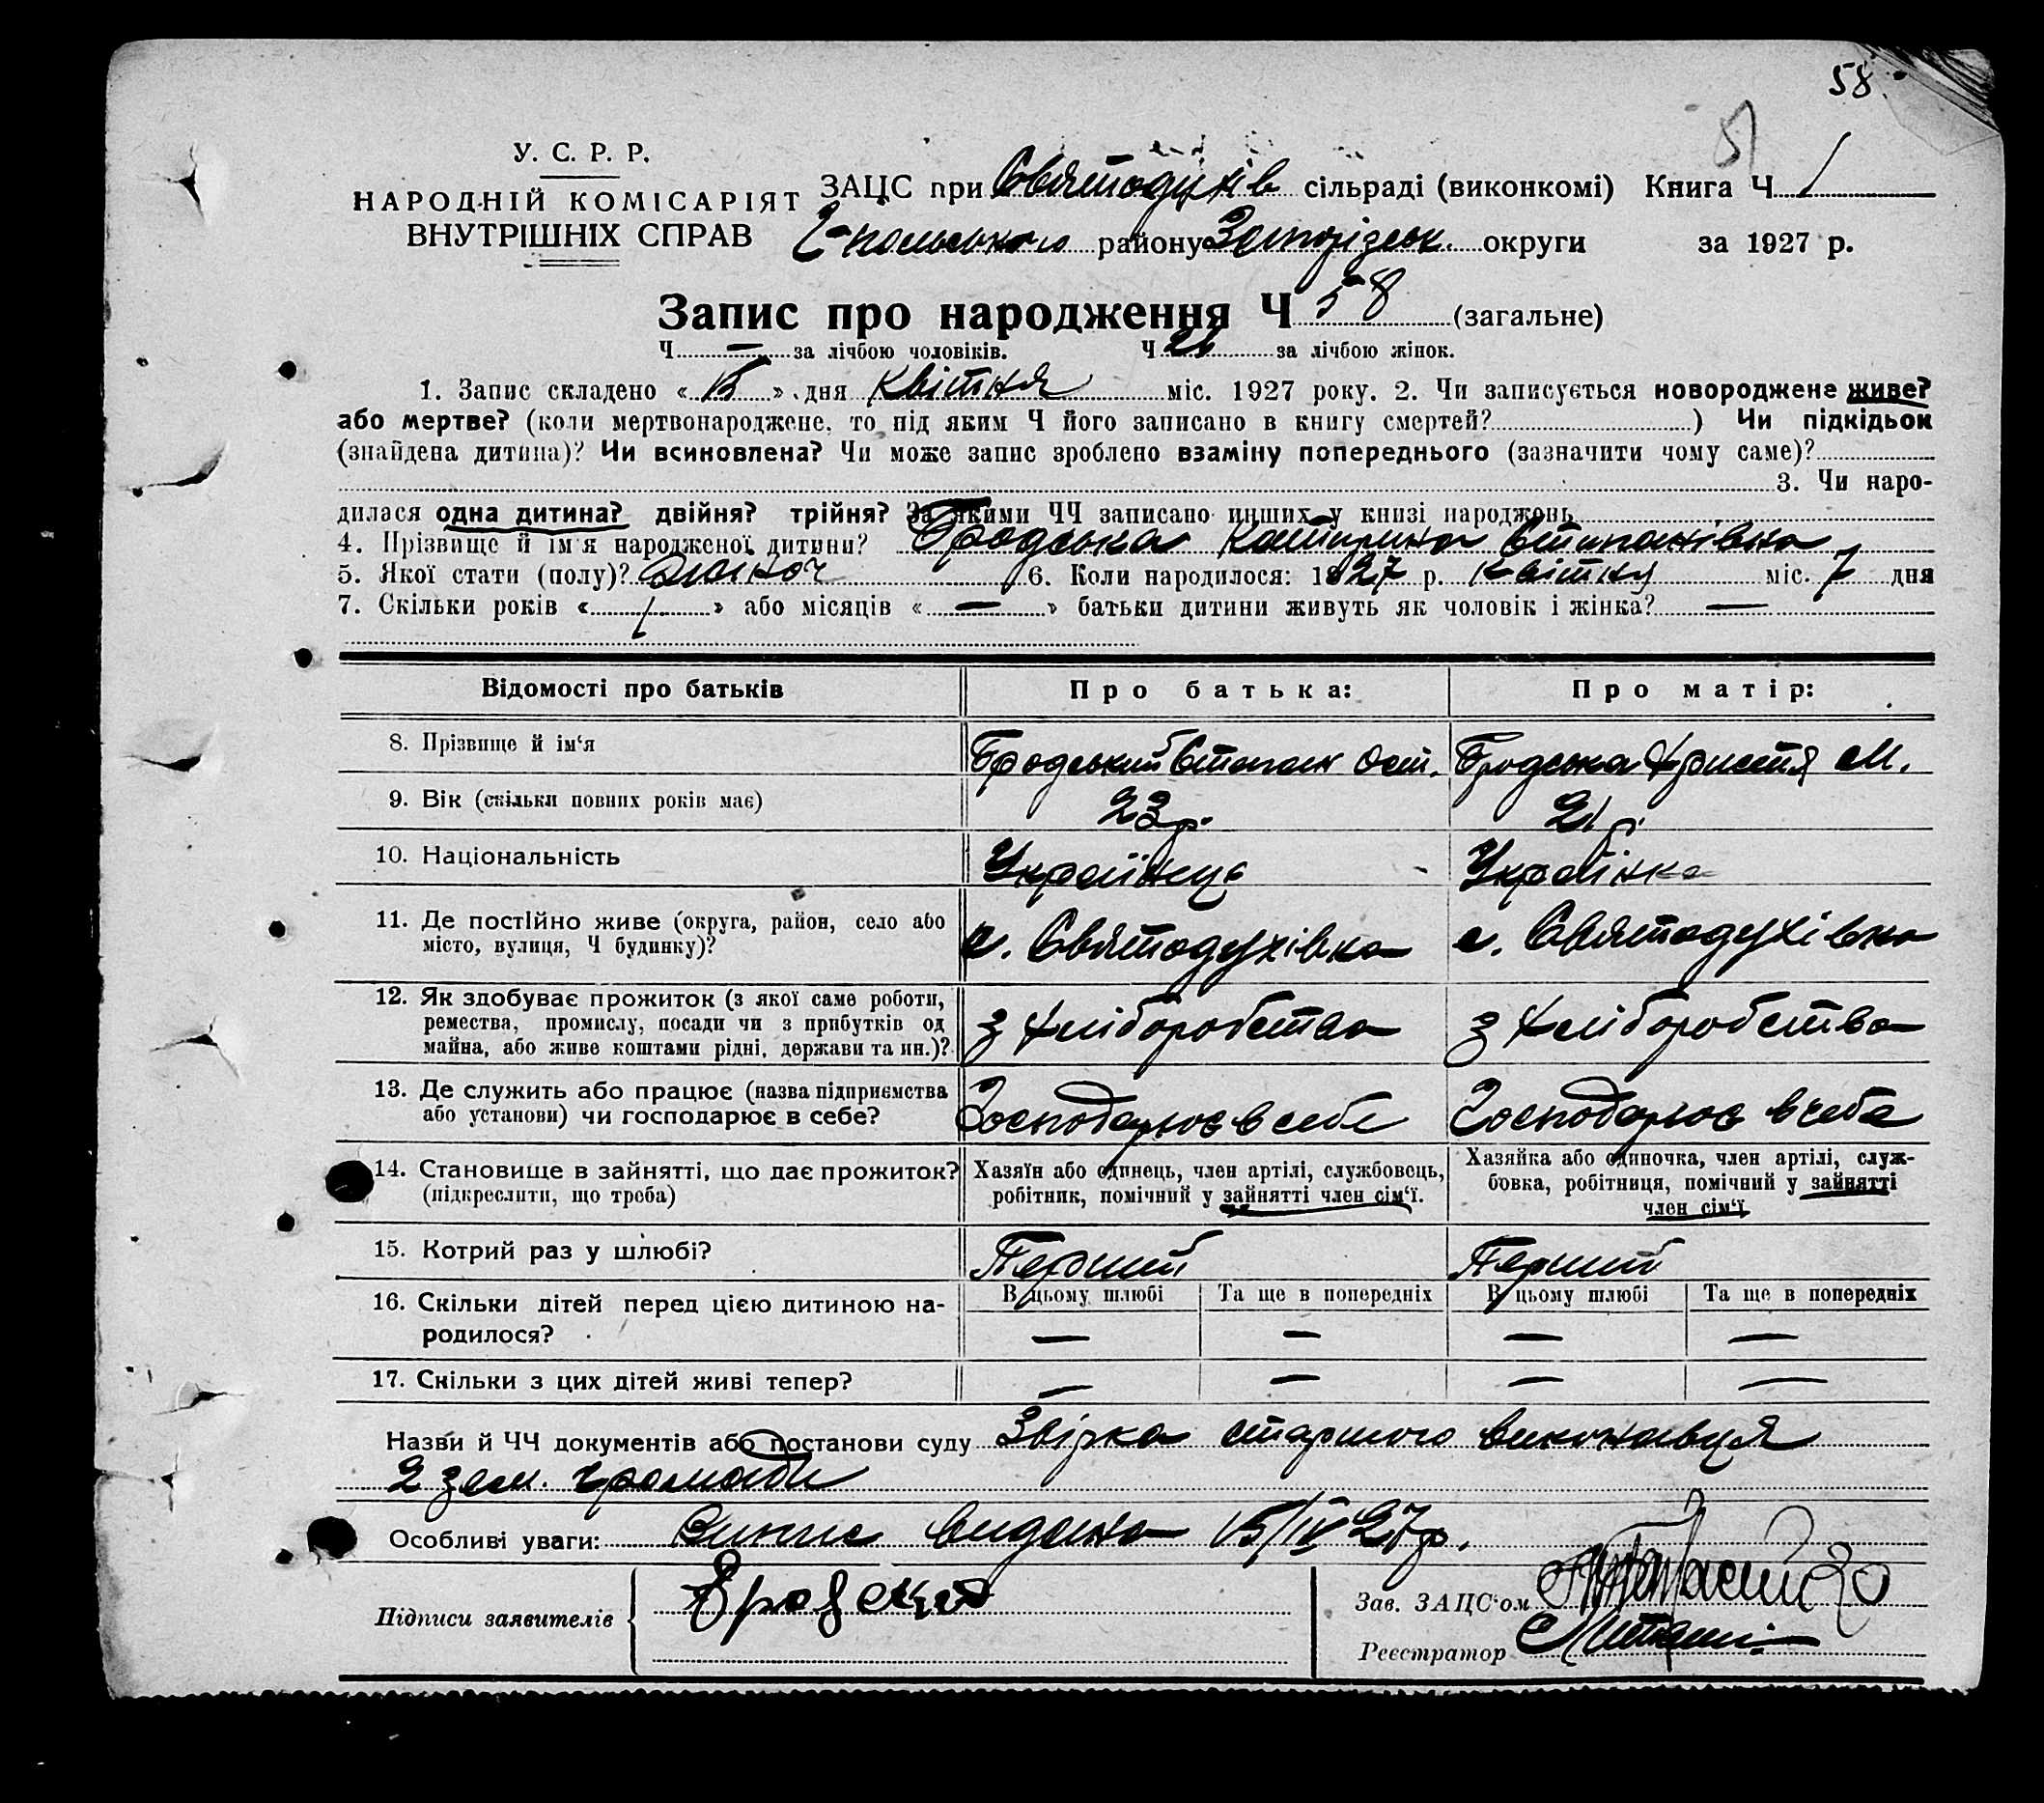 58
У. С. Р. Р.
НАРОДНІЙ КОМІСАРІЯТ
ВНУТРІШНІХ СПРАВ
ЗАЦС при Святодухів сільраді (виконкомі) Книга Ч 1
району Запорізськ. округи за 1927 р.
Запис про народження Ч 58 (загальне)
Ч — за лічбою чоловіків. Ч 26 за лічбою жінок.
1. Запис складено « 15 » дня Квітня міс. 1927 року. 2. Чи записується новороджене живе?
або мертве? (коли мертвонароджене, то під яким Ч його записано в книгу смертей? ) Чи підкідьок
(знайдена дитина)? Чи всиновлена? Чи може запис зроблено взаміну попереднього (зазначити чому саме)?
3. Чи наро-
дилася одна дитина? двійня? трійня? За якими ЧЧ записано инших у книзі народжень
4. Прізвище й ім'я народженої дитини? Бродська Катирина Степанівна
5. Якої стати (полу)? 6. Коли народилося: 1927 р. квітня міс. 7 дня
7. Скільки років « 1 » або місяців « — » батьки дитини живуть як чоловік і жінка? —
Відомості про батьків Про батька: Про матір:
8. Прізвище й ім‘я Бродський Степан Ост. Бродська Христя М.
9. Вік (скільки повних років має) 23 р. 21 р.
10. Національність Українць Українка
11. Де постійно живе (округа, район, село або
місто, вулиця, Ч будинку)? с. Святодухівка с. Святодухівка
12. Як здобуває прожиток (з якої саме роботи,
ремества, промислу, посади чи з прибутків од
майна, або живе коштами рідні, держави та ин.)? з хліборобства з хліборобства
13. Де служить або працює (назва підприємства
або установи) чи господарює в себе? Господарює в себе Господарює в себе
14. Становище в зайнятті, що дає прожиток?
(підкреслити, що треба)
Хазяїн або одинець, член артілі, службовець,
робітник, помічний у зайнятті член сім‘ї.
Хазяйка або одиночка, член артілі, служ-
бовка, робітниця, помічний у зайнятті
член сім‘ї
15. Котрий раз у шлюбі? Перший Перший
16. Скільки дітей перед цією дитиною на-
родилося?
В цьому шлюбі Та ще в попередніх В цьому шлюбі Та ще в попередніх
— — — —
17. Скільки з цих дітей живі тепер? — — — —
Назви й ЧЧ документів або постанови суду Звірка старшого виконавця
2 зем. громади
Особливі уваги: Випис видано 15/IV 27 р.
Підписи заявителів Бродский
Зав. ЗАЦС‘ом
Реєстратор